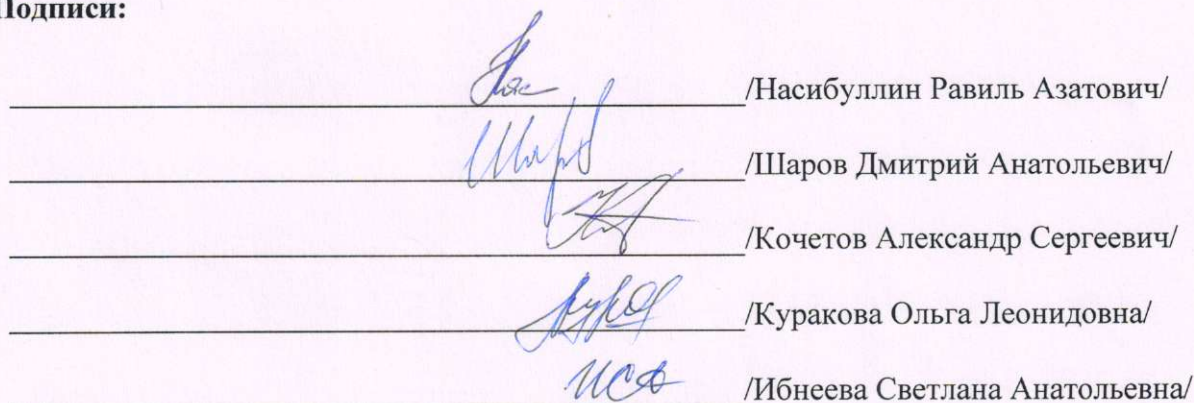 Подписи:
/Насибуллин Равиль Азатович/
/Шаров Дмитрий Анатольевич/
/Кочетов Александр Сергеевич/
/Куракова Ольга Леонидовна/
/Ибнеева Светлана Анатольевна/